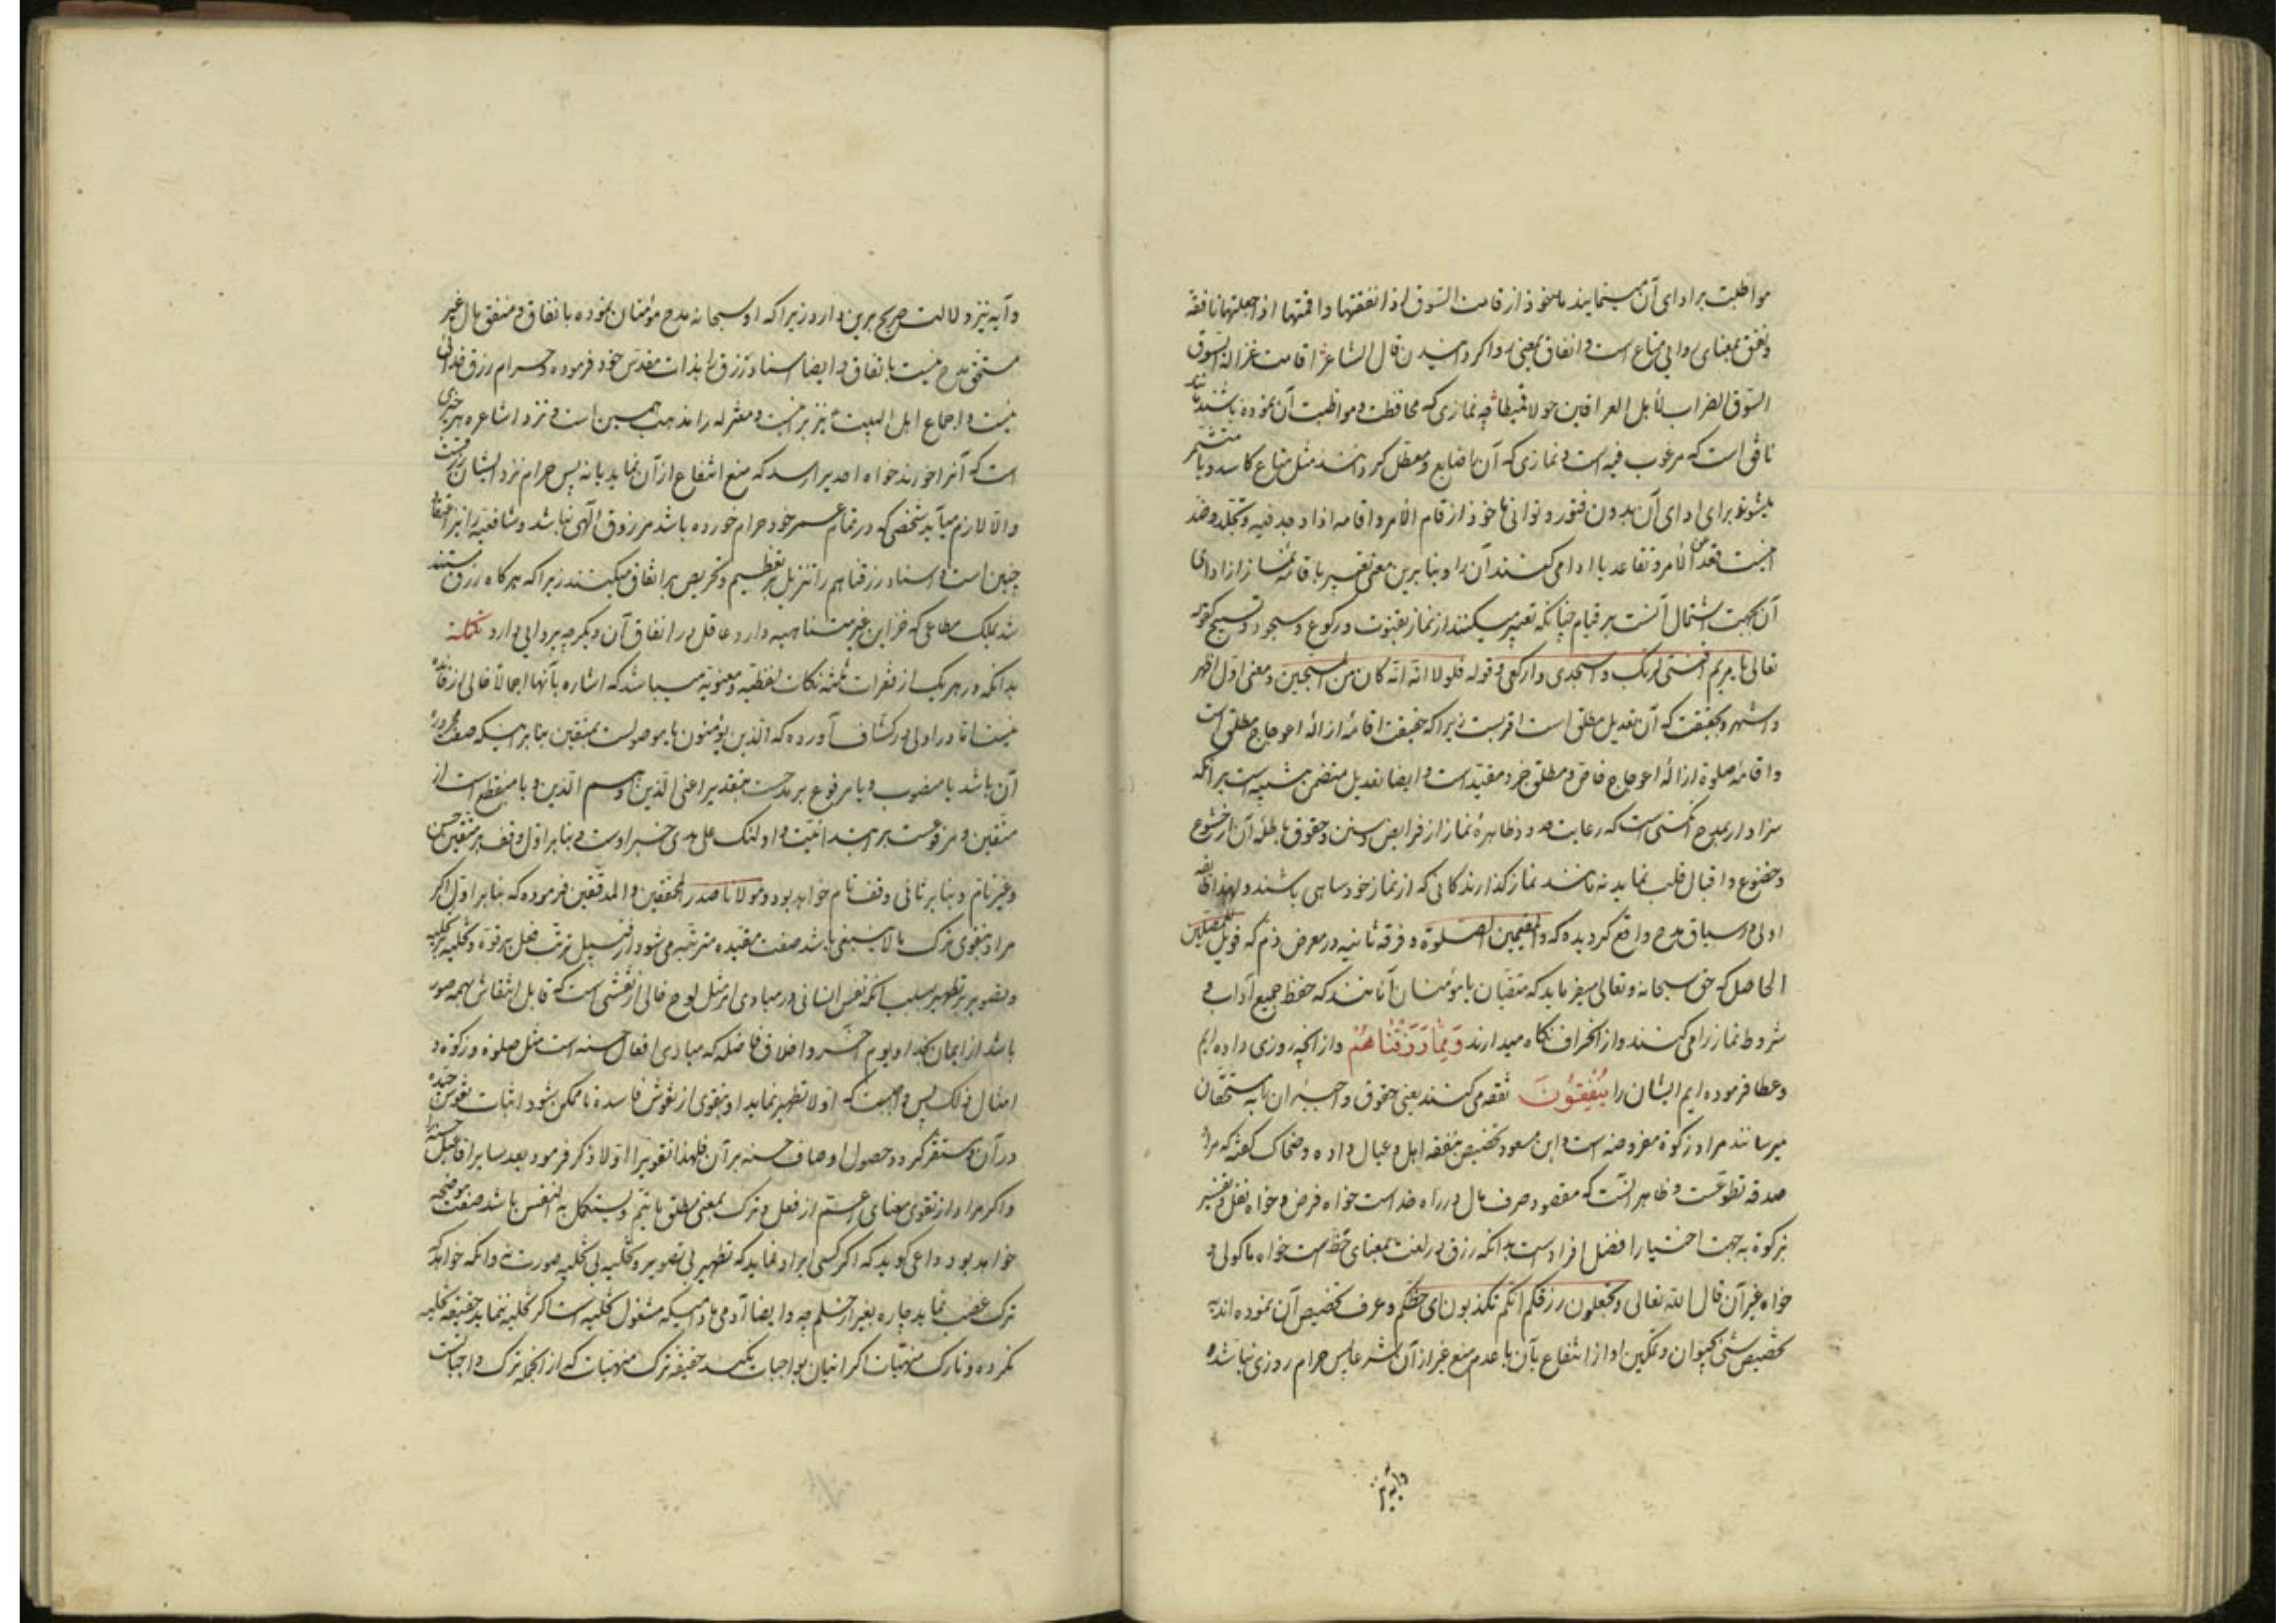 مواظبت بر ادای آن مینمایند ماخوذ از قامت السوق اذا نفقتها واقمتها اذا جعلتها نافقة
ونفق بمعنای روایی متاع است و انفاق بمعنی روا کردانیدن قال الشاعر اقامت غزالة السوق
السوق الضراب لأهل العراقین حولا قمیطا چه نمازی که محافظت و مواظبت آن نموده باشند مانند
نافق است که مرغوب فیه است و نمازی که آن را ضایع و معطل کردانند مثل متاع کاسد و یا متشمر
میشوند برای ادای آن بدون فتور و توانی ماخوذ از قام الامر واقامه اذا جد فیه وتجلد وضد
اینست قعد عن الامر وتقاعد یا ادا می کنند آن را و بنابرین معنی تعبیر باقامه نماز از ادای
آن بجهت اشتمال آنست بر قیام چنانکه تعبیر میکنند از نماز بقنوت و رکوع و سجود و تسبیح کقوله
تعالی یا مریم اقنتی لربک واسجدی وارکعی و قوله فلولا انه کان من المسبحین و معنی اول اظهر
و اشهر و بحقیقت که آن تعدیل مطلق است اقربست زیرا که حقیقت اقامه ازاله اعوجاج مطلق است
و اقامه صلوة ازاله اعوجاج خاص و مطلق جزء مقید است و ایضا تعدیل متضمن تنبیه است بر آنکه
سزاوار بمدح آنکسی است که رعایت حدود ظاهره نماز از فرایض و سنن و حقوق باطنه آن از خشوع
و خضوع و اقبال قلب نماید نه مانند نماز کذارندکانی که از نماز خود ساهی باشند و لهذا طایفه
اولی در سیاق مدح واقع کردیده که والمقیمین الصلوة و فرقه ثانیه در معرض ذم که فویل للمصلین
الحاصل که حق سبحانه وتعالی میفرماید که متقیان یا مؤمنان آنانند که حفظ جمیع آداب و
شروط نماز را می کنند و از انحراف نکاه میدارند وَمِمَّا رَزَقْنَاهُمْ و از آنچه روزی داده ایم
و عطا فرموده ایم ایشان را یُنْفِقُونَ نفقه می کنند یعنی حقوق واجبه آن را به مستحقان
میرسانند مراد زکوة مفروضه است و ابن مسعود تخصیص بنفقه اهل و عیال داده و ضحاک کفته که مراد
صدقه تطوعست و ظاهر آنست که مقصود صرف مال در راه خداست خواه فرض و خواه نفل و تفسیر
بزکوة به جهت اختیار افضل افرادست بدانکه رزق در لغت بمعنای حظ است خواه ماکولی و
خواه غیر آن قال الله تعالی وتجعلون رزقکم انکم تکذبون ای حظکم و عرف تخصیص آن نموده اند به
تخصیص شئ بحیوان و تمکین او از انتفاع بآن با عدم منع غیر از آن شرعا پس حرام روزی نباشد
و آیه نیز
و آیه نیز دلالت صریح برین دارد زیرا که او سبحانه مدح مؤمنان نموده بانفاق و منفق مال غیر
مستحق مدح نیست باتفاق و ایضا اسناد رزق را بذات مقدس خود فرموده و حرام رزق خدائی
نیست و اجماع اهل البیت نیز برینست و معتزله را مذهب همین است و نزد اشاعره هر چیزی
است که آنرا خورند خواه احدیرا رسد که منع انتفاع از آن نماید یا نه پس حرام نزد ایشان رزقست
والا لازم میآید شخصی که در تمام عمر خود حرام خورده باشد مرزوق الهی نباشد و شافعیه را نیز اعتقاد
چنین است و اسناد رزقناهم را تنزیل بر تعظیم و تحریص بر انفاق میکنند زیرا که هر کاه رزق مستند
شد بملک مطاعی که خزاین غیر متناهیه دارد عاقل را در انفاق آن دیکر چه پروایی دارد تکملة
بدانکه در هر یک از فقرات ثلثه نکات لفظیه و معنویه میباشد که اشاره بآنها اجمالا خالی از فایده
نیست اما در اولی در کشاف آورده که الذین یؤمنون یا موصولست بمتقین بنابر اینکه صفت مجروره
آن باشد یا منصوب و یا مرفوع بر مدحست بتقدیر اعنی الذین او هم الذین و یا منقطع است از
متقین و مرفوعست بر ابتدائیت و اولئک علی هدی خبر اوست و بنابر اول وقف بر متقین حسن
و غیر تام و بنابر ثانی وقف تام خواهد بود و مولانا صدر المحققین والمدققین فرموده که بنابر اول اکر
مراد بتقوی ترک ما لا ینبغی باشد صفت مقیده مترتبه می شود از قبیل ترتب فعل بر قوة و تحلیه بر تخلیه
و تصویر بر تطهیر بسبب آنکه نفس انسانی در مبادی امر مثل لوح خالی از نقشی است که قابل انتقاش همه صور
باشد از ایمان بخدا و یوم آخر و اخلاق فاضله که مبادی افعال حسنه است مثل صلوة و زکوة و
امثال ذلک پس واجبست که اولا تطهیر نماید او بتقوی از نقوش فاسده تا ممکن شود اثبات نقوش جیده
در آن و مستقر کردد حصول اوصاف حسنه بر آن فلهذا تقوی را اولا ذکر فرمود بعد سایر افاعیل حسنه را
و اکر مراد از تقوی معنای اعم از فعل و ترک بمعنی مطلق ما یتم و یستکمل به النفس باشد صفت موضحه
خواهد بود و داعی کوید که اکر کسی ایراد نماید که تطهیر بی تصویر و تخلیه بی تحلیه صورت نه و آنکه خواهد
ترک غضب نماید چاره بغیر از حلم چه و ایضا آدمی مادامیکه مشغول تخلیه است اکر تحلیه ننماید حقیقة تخلیه
نکرده و تارک منهیات اکر اتیان بواجبات نکند حقیقة ترک منهیات که از آنجمله ترک واجباتست